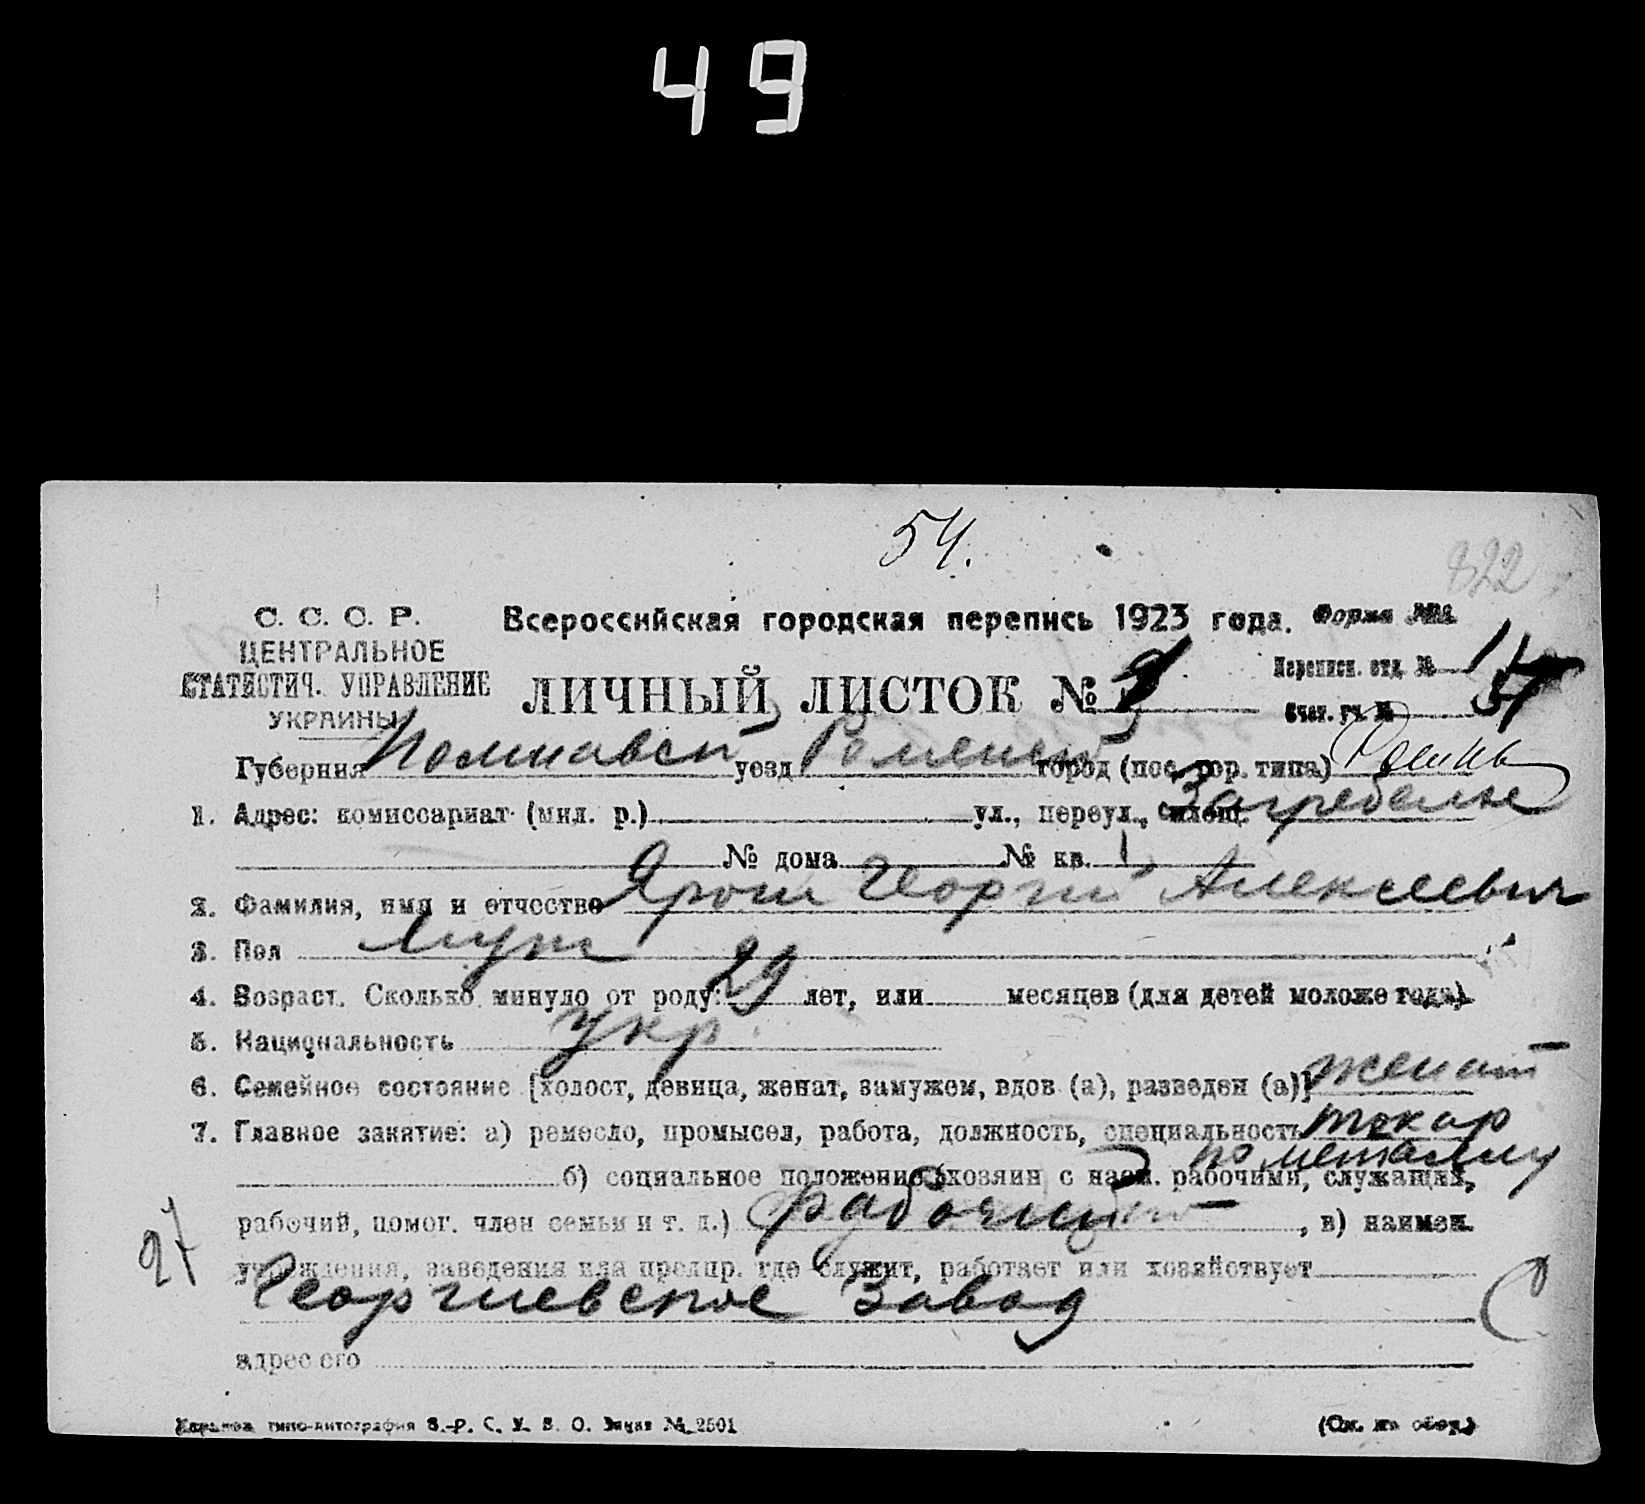 49
54.
822
С. С. С. Р.
Всероссийская городская перепись 1923 года. Форма №1
ЦЕНТРАЛЬНОЕ
СТАТИСТИЧ. УПРАВЛЕНИЕ
УКРАИНЫ
ЛИЧНЫЙ ЛИСТОК №
Переписн. отд. №
Счет. уч. №
Губерния Полтавск уезд Роменский город (пос. гор. типа) Ромны
1. Адрес: комиссариат (мил. р.) ул., переул., площ. Загребелье
№ дома № кв. 1
2. Фамилия, имя и отчество Ярош Георгий Алексеевич
3. Пол Муж
4. Возраст. Сколько минуло от роду: 29 лет, или месяцев (для детей моложе года)
5. Национальность Укр.
6. Семейное состояние [холост, девица, женат, замужем, вдов (а), разведен (а)] женат
7. Главное занятие: а) ремесло, промысел, работа, должность, специальность токар
по металлу
б) социальное положение (хозяин с наем. рабочими, служащий,
рабочий, помог. член семьи и т. д.) рабочий, в) наимен.
27
учреждения, заведения или предпр. где служит, работает или хозяйствует
Георгиевское Завод
адрес его
Харьков типо-литография В.-Р. С. У. В. О. Заказ № 2501
(См. на обор.)